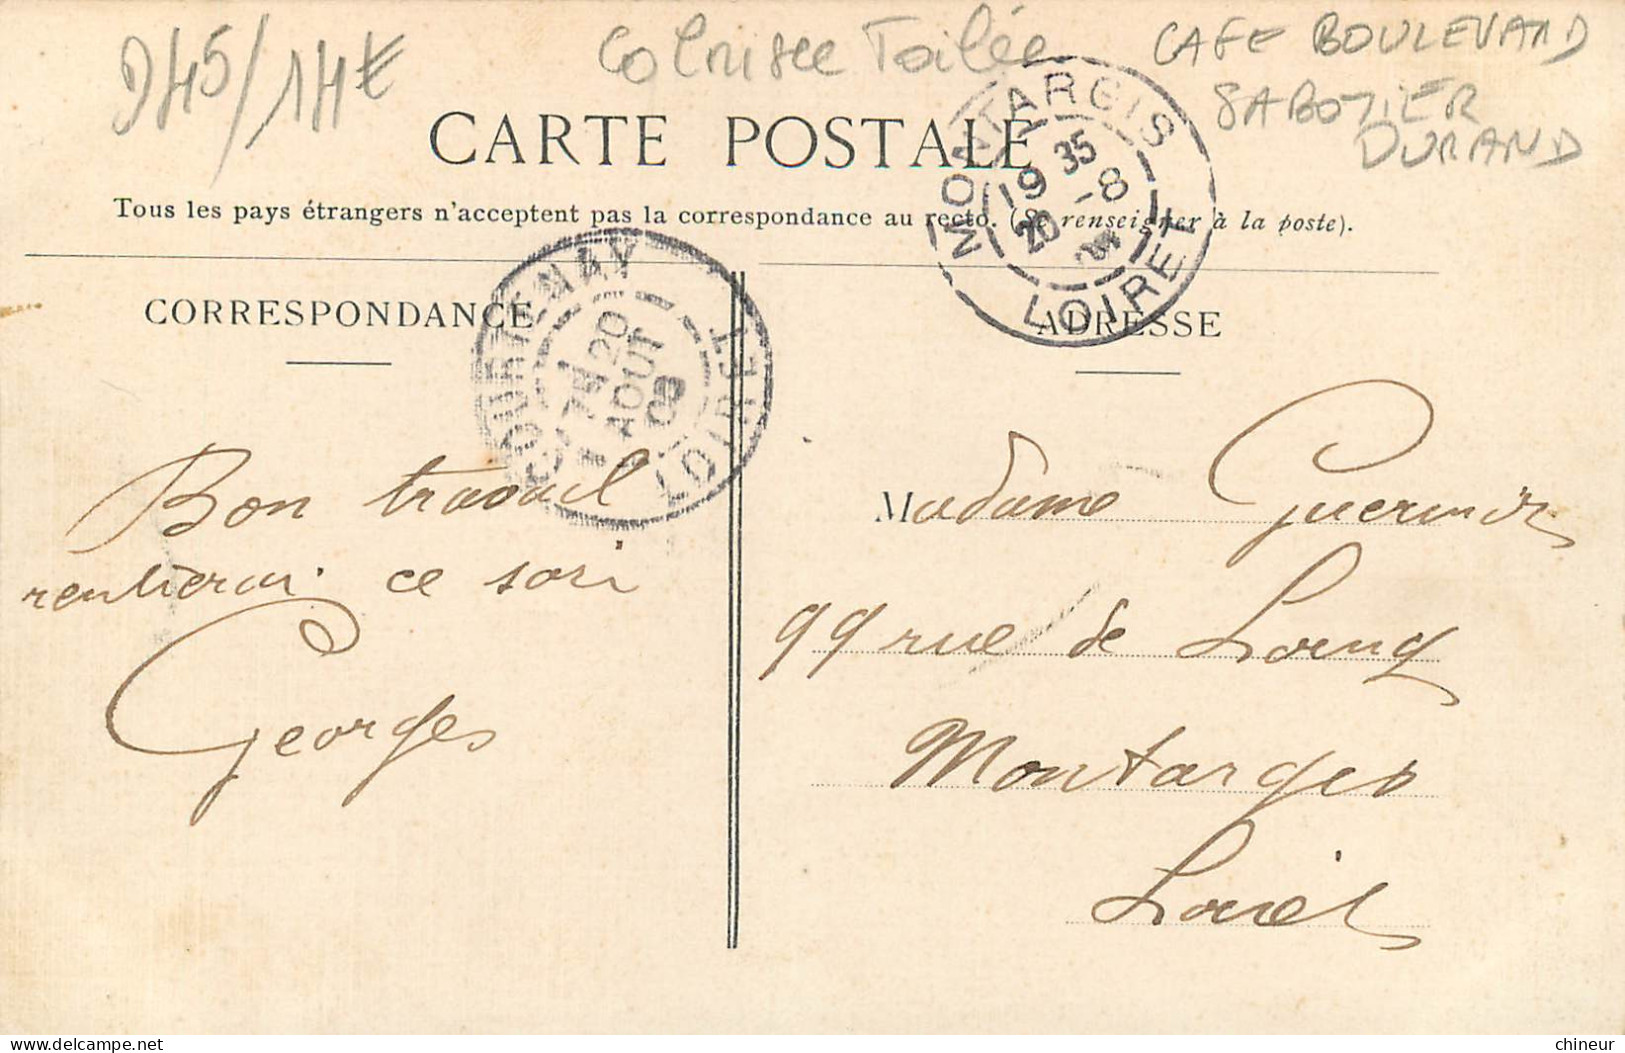 D45/14€
Colorisée Toilée
CAFE BOULEVARD
SABOTIER
DURAND
CARTE POSTALE
Tous les pays étrangers n'acceptent pas la correspondance au recto. (Se renseigner à la poste).
MONTARGIS
19 35
20 -8
LOIRET
COURTENAY
20
AOUT
LOIRET
CORRESPONDANCE
ADRESSE
Bon travail
rentrerai ce soir
Georges
Madame
99 rue de
Montargis
Loiret
chineur